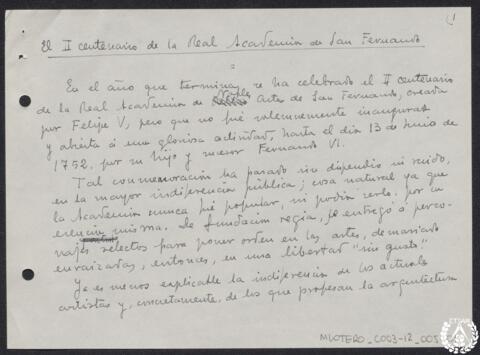 1
El II centenario de la Real Academia de San Fernando
En el año que termina, se ha celebrado el II centenario
de la Real Academia de Nobles Artes de San Fernando, creada
por Felipe V, pero que no fué solemnemente inaugurada
y abierta a una gloriosa actividad, hasta el día 13 de Junio de
1752, por su hijo y sucesor Fernando VI.
Tal conmemoración ha pasado sin dispendio ni ruido,
en la mayor indiferencia pública; cosa natural ya que
la Academia nunca fué popular, ni podía serlo, por su
esencia misma. De fundación regia, se entregó a perso-
najes selectos para poner orden en las artes, demasiado
enraizadas, entonces, en una libertad "sin gusto".
Ya es menos explicable la indiferencia de los actuales
artistas y, concretamente, de los que profesan la arquitectura
MLOTERO_C003-12_005